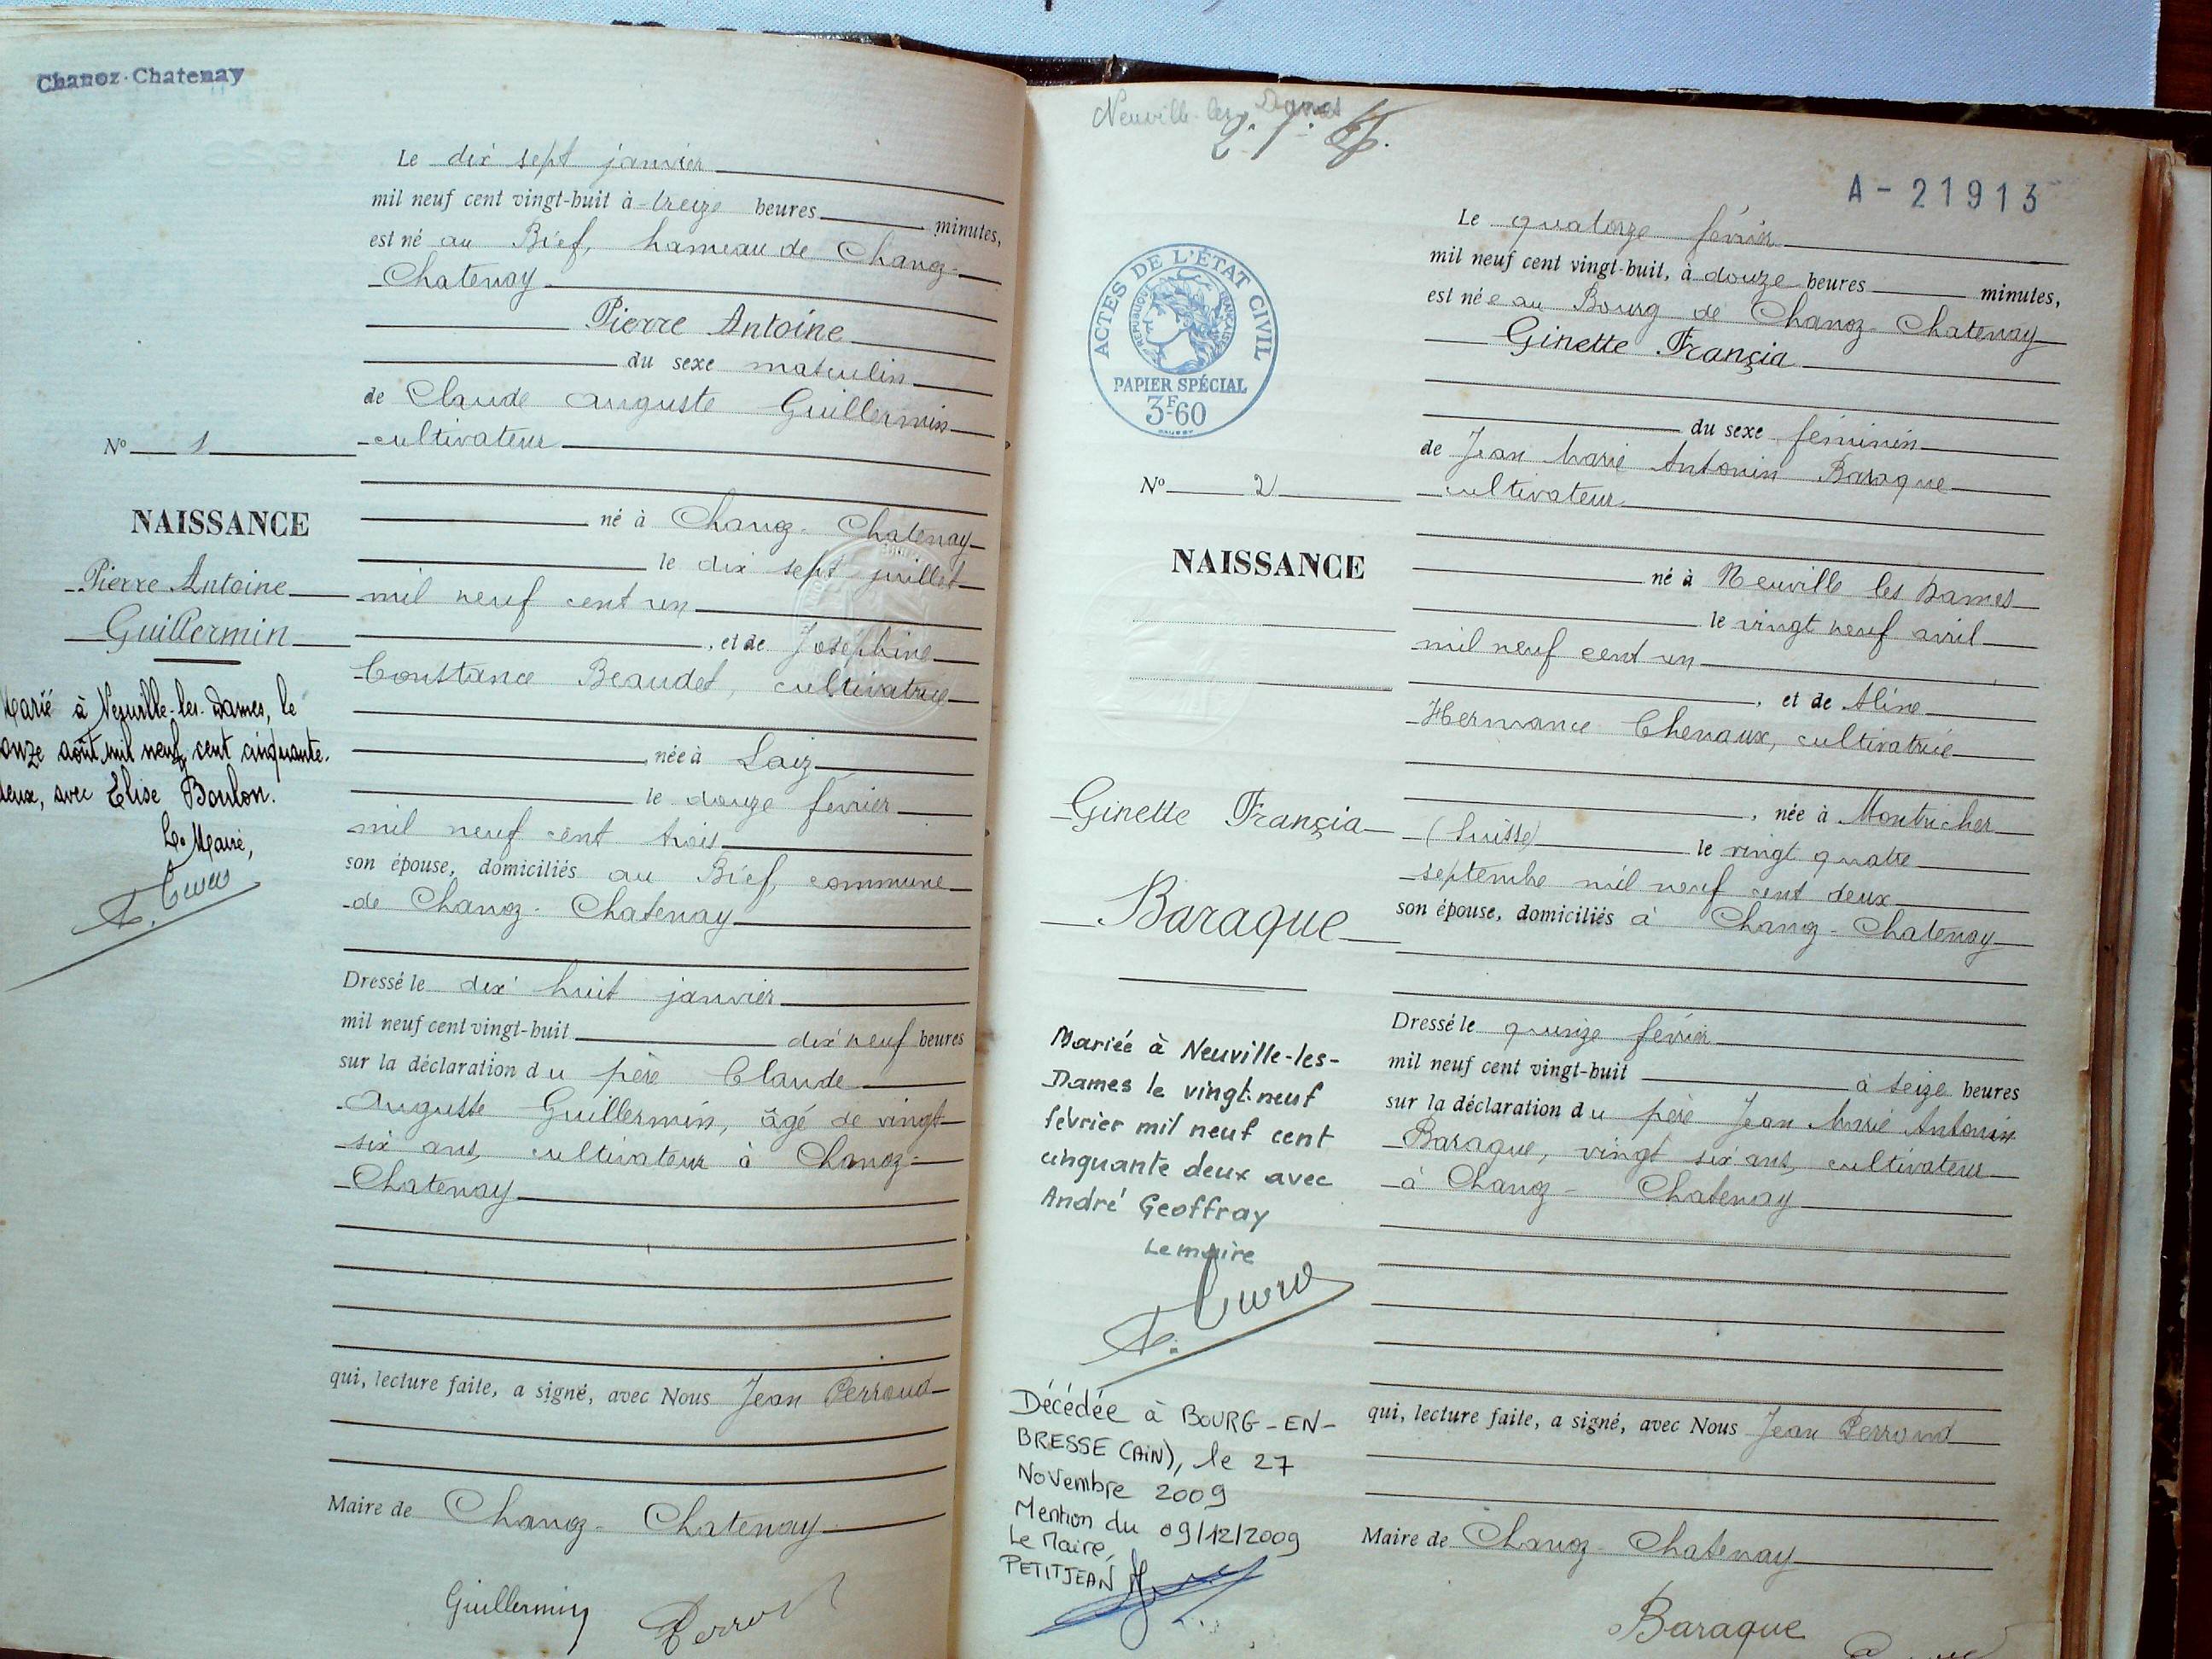 Chanoz-Chatenay
Le dix sept janvier
mil neuf cent vingt-huit à treize heures minutes,
est né au Bief, hameau de Chanoz-
Chatenay
Pierre Antoine
du sexe masculin
de Claude Auguste Guillermin
cultivateur
né à Chanoz-Chatenay
le dix sept juillet
mil neuf cent un
, et de Joséphine
Constance Beaudet, cultivatrice
née à Laiz
le douze février
mil neuf cent trois
son épouse, domiciliés au Bief, commune
de Chanoz-Chatenay
Dressé le dix huit janvier
mil neuf cent vingt-huit dix neuf heures
sur la déclaration du père Claude
Auguste Guillermin, âgé de vingt
six ans, cultivateur à Chanoz-
Chatenay
qui, lecture faite, a signé, avec Nous Jean Perroud
Maire de Chanoz-Chatenay
Guillermin
N° 1
NAISSANCE
Pierre Antoine
Guillermin
Marié à Neuville-les-Dames, le
onze août mil neuf cent cinquante-
deux, avec Elise Boulon.
Le Maire,
Neuville-les-Dames
A-21913
ACTES DE L'ÉTAT CIVIL
RÉPUBLIQUE FRANÇAISE
PAPIER SPÉCIAL
3F-60
Le quatorze février
mil neuf cent vingt-huit, à douze heures minutes,
est née au Bourg de Chanoz-Chatenay
Ginette França
du sexe féminin
de Jean Marie Antonin Baraque
cultivateur
né à Neuville les Dames
le vingt neuf avril
mil neuf cent un
, et de Aline
Hermance Chenaux, cultivatrice
, née à Montricher
(Suisse) le vingt quatre
septembre mil neuf cent deux
son épouse, domiciliés à Chanoz-Chatenay
Dressé le quinze février
mil neuf cent vingt-huit à seize heures
sur la déclaration du père Jean Marie Antonin
Baraque, vingt six ans, cultivateur
à Chanoz-Chatenay
qui, lecture faite, a signé, avec Nous Jean Perroud
Maire de Chanoz-Chatenay
Baraque
N° 2
NAISSANCE
Ginette Françia
Baraque
Mariée à Neuville-les-
Dames le vingt-neuf
février mil neuf cent
cinquante deux avec
André Geoffray
Le maire
Décédée à BOURG-EN-
BRESSE (AIN), le 27
Novembre 2009
Mention du 09/12/2009
Le Maire,
PETITJEAN